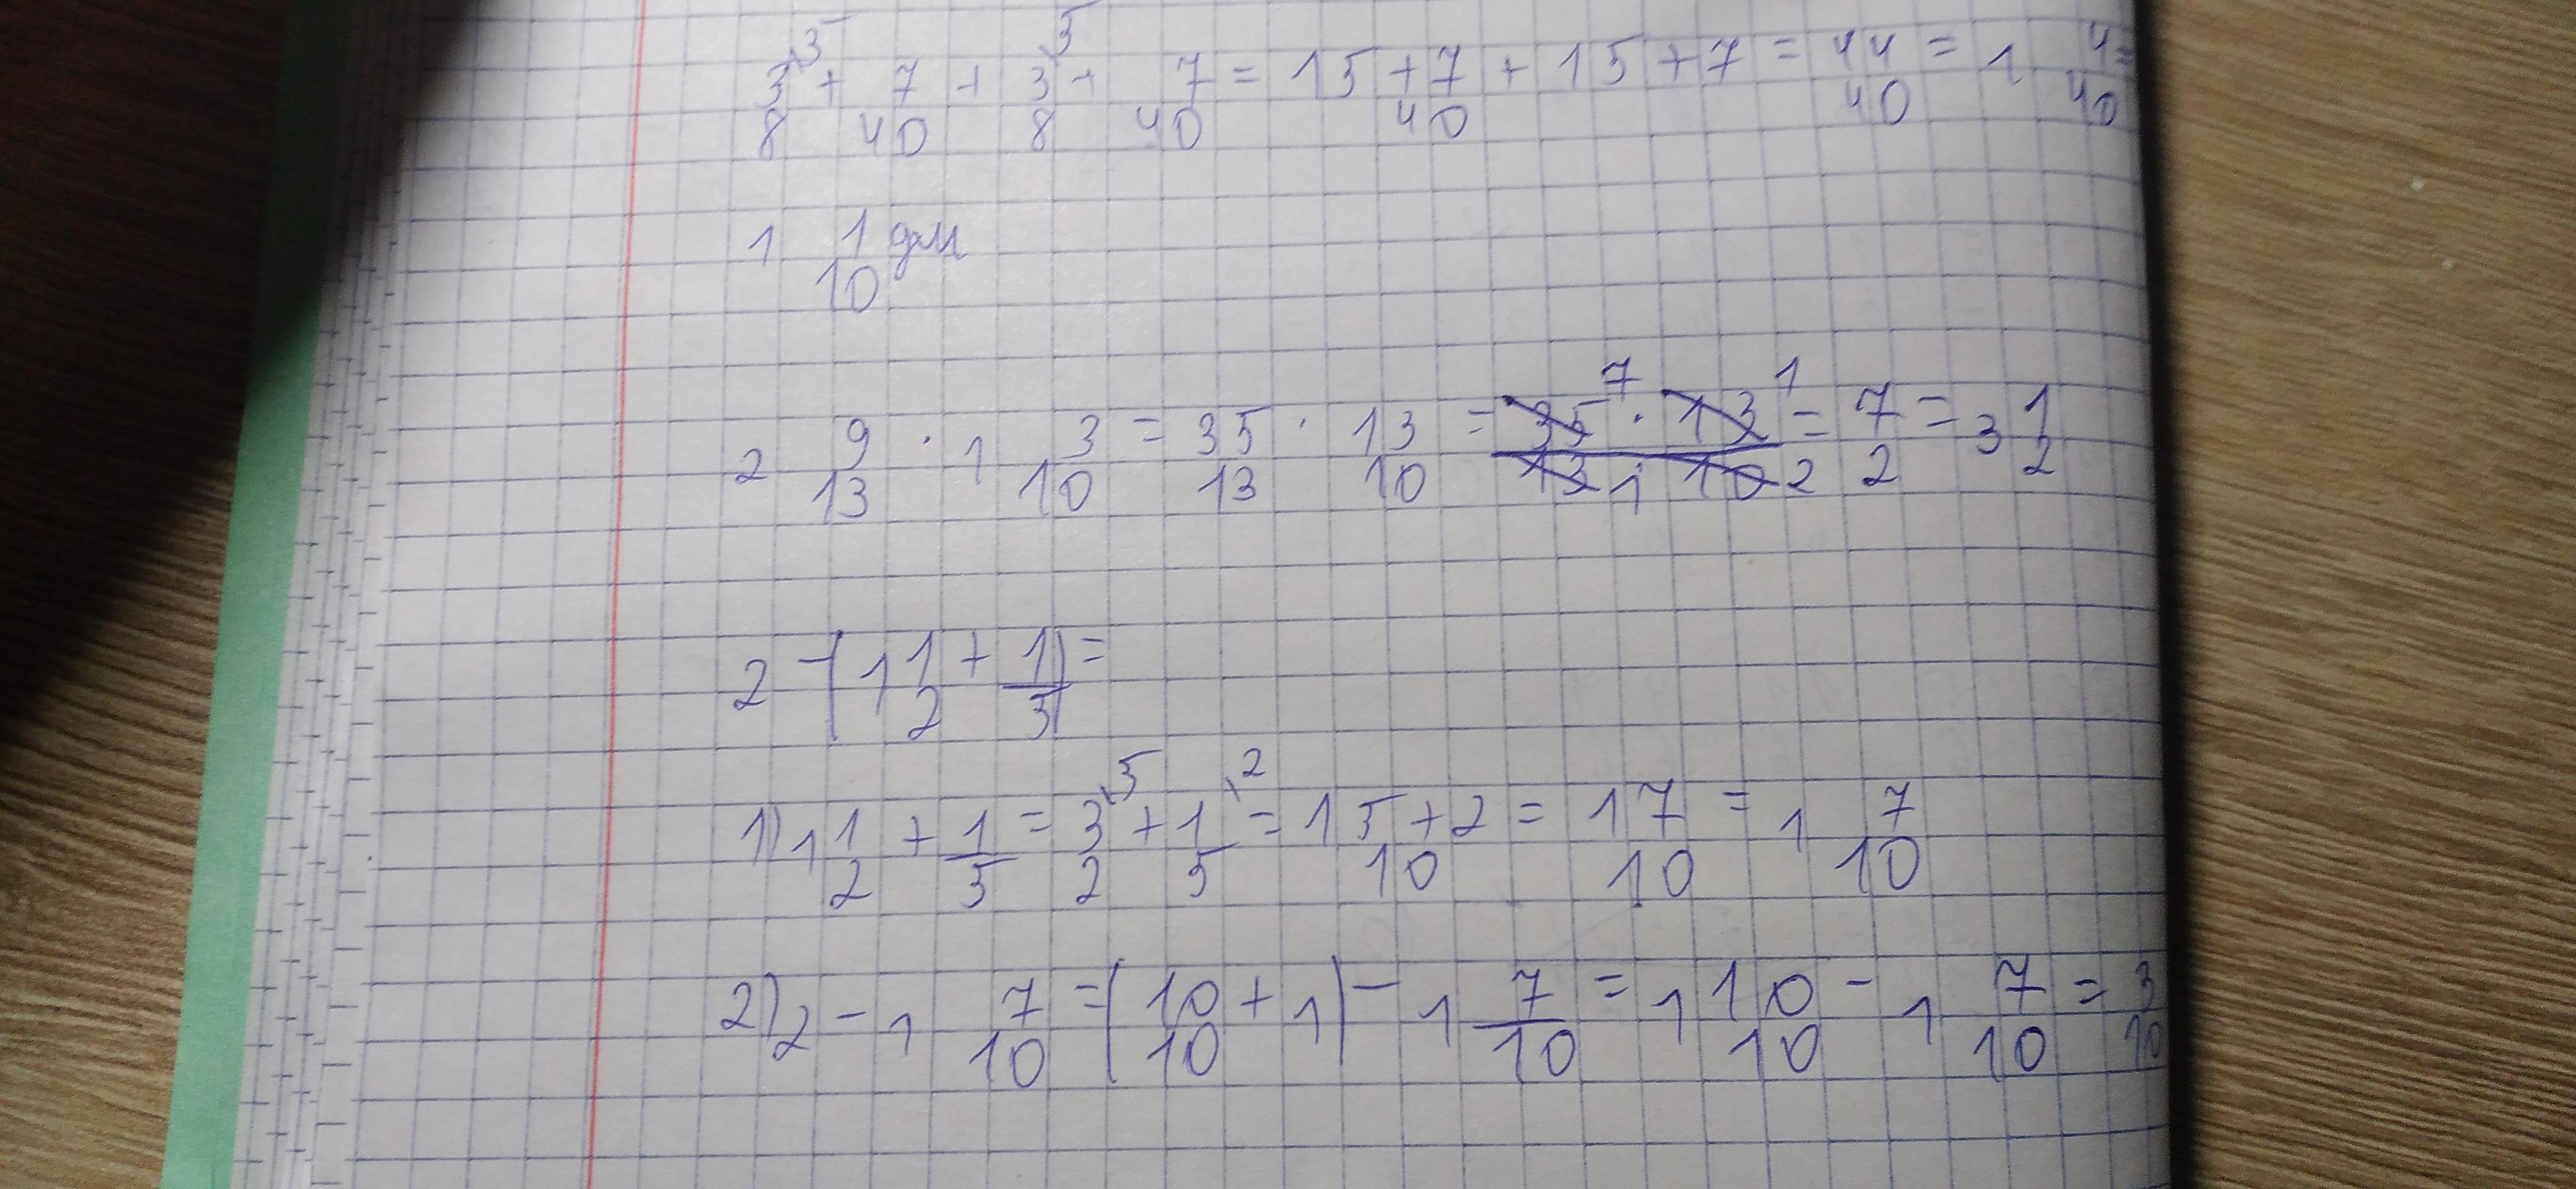 3/8 \5 + 7/40 + 3/8 \5 + 7/40 = 15+7+15+7/40 = 44/40 = 1 4/40 =
1 1/10 дм
2 9/13 · 1 3/10 = 35/13 · 13/10 = 35 7 · 13 1/13 1 10 2 = 7/2 = 3 1/2
2 - (1 1/2 + 1/3) =
1) 1 1/2 + 1/5 = 3/2 \5 + 1/5 \2 = 15+2/10 = 17/10 = 1 7/10
2) 2 - 1 7/10 = (10/10 + 1) - 1 7/10 = 1 10/10 - 1 7/10 = 3/10